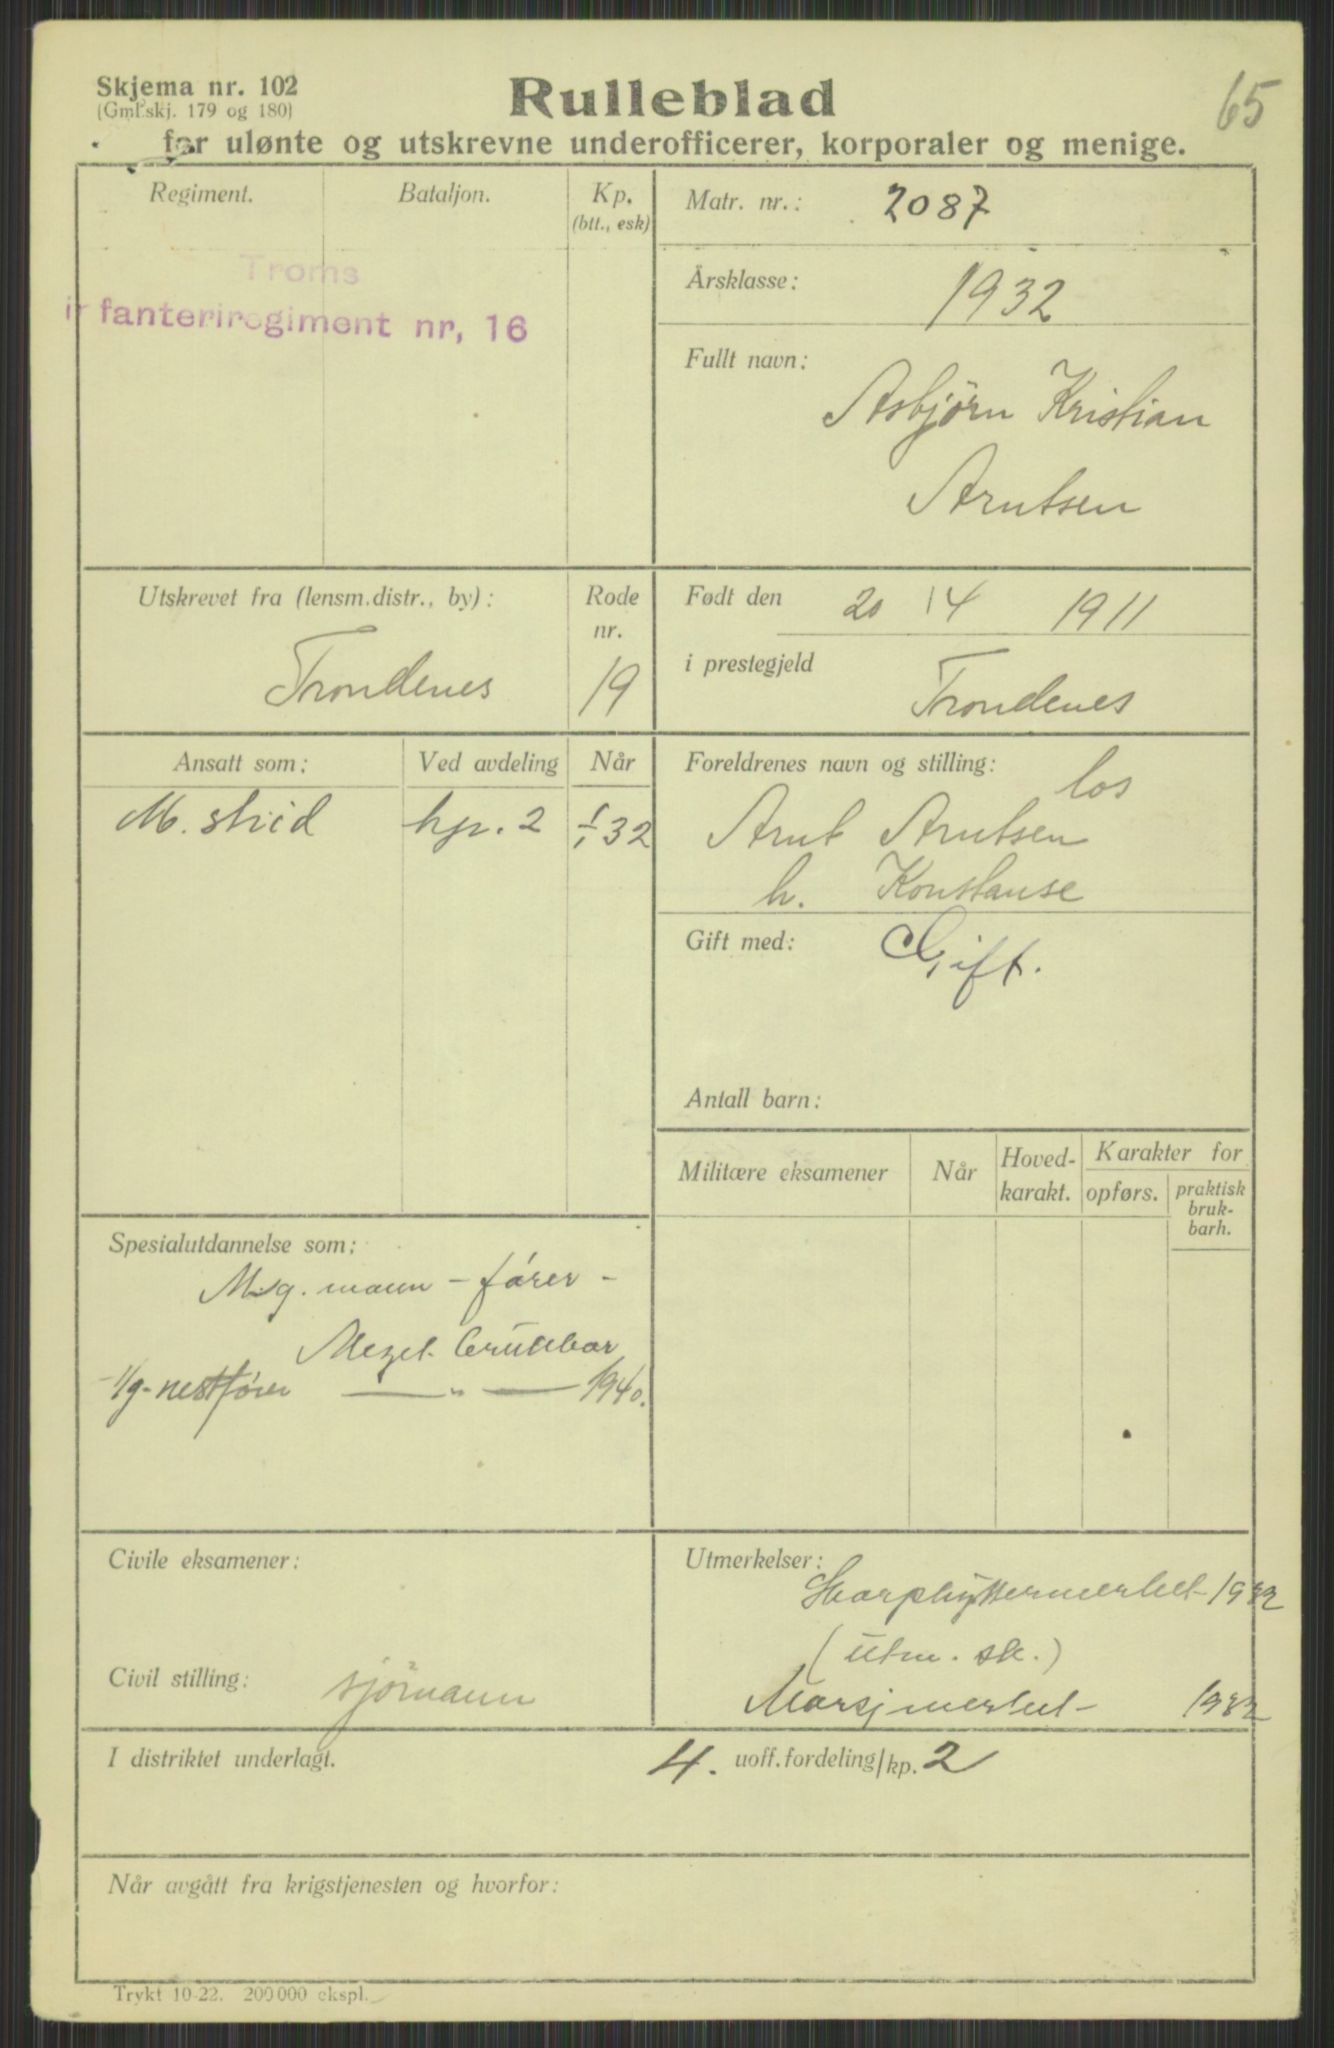 Skjema nr. 102
(Gml. skj. 179 og 180)
Rulleblad
65
for ulønte og utskrevne underofficerer, korporaler og menige.
Regiment.
Bataljon.
Kp.
(btt., esk)
Troms
infanteriregiment nr, 16
Matr. nr.: 2087
Årsklasse: 1932
Fullt navn:
Asbjörn Kristian
Arntsen
Utskrevet fra (lensm.distr., by):
Trondenes
Rode
nr.
19
Født den 20 / 4 1911
i prestegjeld
Trondenes
Ansatt som:
Ved avdeling
Når
M. skid
kp. 2
32
Foreldrenes navn og stilling:
los
Arnt Arntsen
h. Konstanse
Gift med: Gift.
Antall barn:
Militære eksamener
Når
Hoved-
karakt.
Karakter for
opførs.
praktisk
bruk-
barh.
Spesialutdannelse som:
M.sg. mann - fører -
Meget brukbar
nestfører — " — 1940.
Civile eksamener:
Civil stilling: sjömann
Utmerkelser:
Skarpskyttermerket 1932
(utm. sk.)
Marsjmerket 1932
I distriktet underlagt.
4. uoff.fordeling/kp. 2
Når avgått fra krigstjenesten og hvorfor:
Trykt 10-22. 200 000 ekspl.